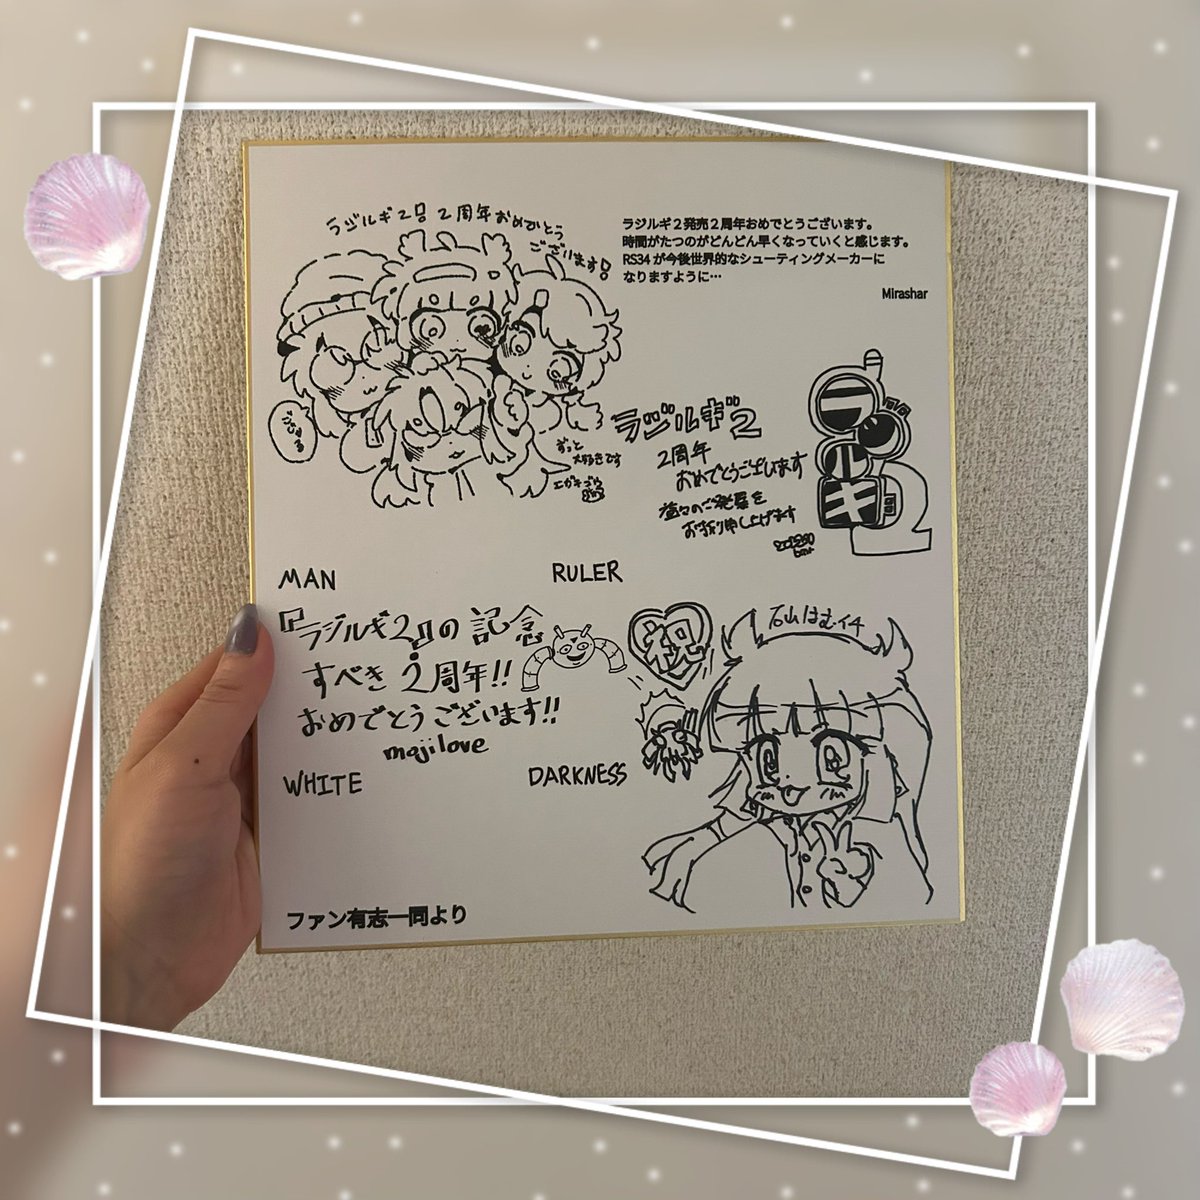 ラジルギ2!! 2周年おめでとう
ございます!
ラジルギ２発売２周年おめでとうございます。
時間がたつのがどんどん早くなっていくと感じます。
RS34が今後世界的なシューティングメーカーに
なりますように…
Mirashar
ずっと
大好きです
ラジルギ2
2周年
おめでとうございます
益々のご発展を
お祈り申し上げます
ラジルギ2
MAN
RULER
『ラジルギ2』の記念
すべき2周年!!
おめでとうございます!!
mojilove
WHITE
DARKNESS
祝
石山はむイチ
ファン有志一同より